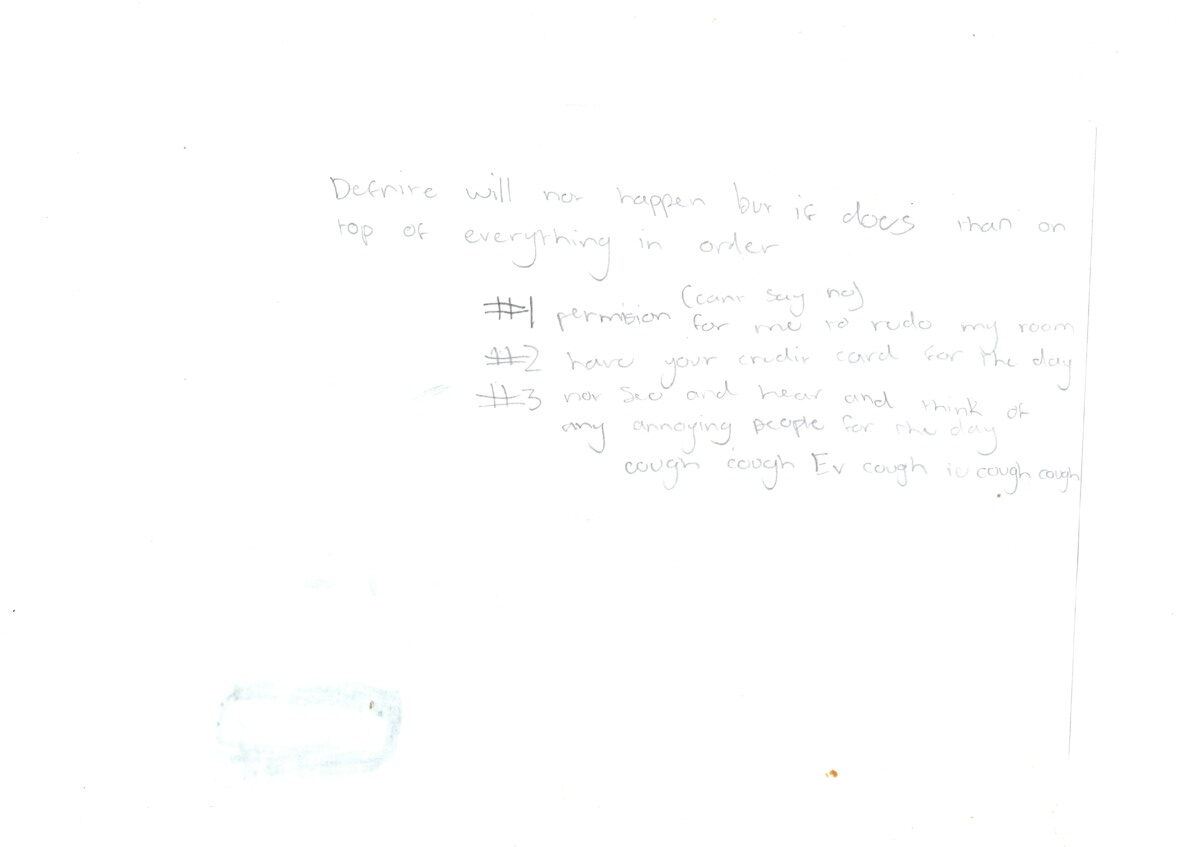 Defnite will not happen but if does than on
top of everything in order
#1 permision (cant say no)
for me to redo my room
#2 have your credit card for the day
#3 not see and hear and think of
any annoying people for the day
cough cough Ev cough ie cough cough